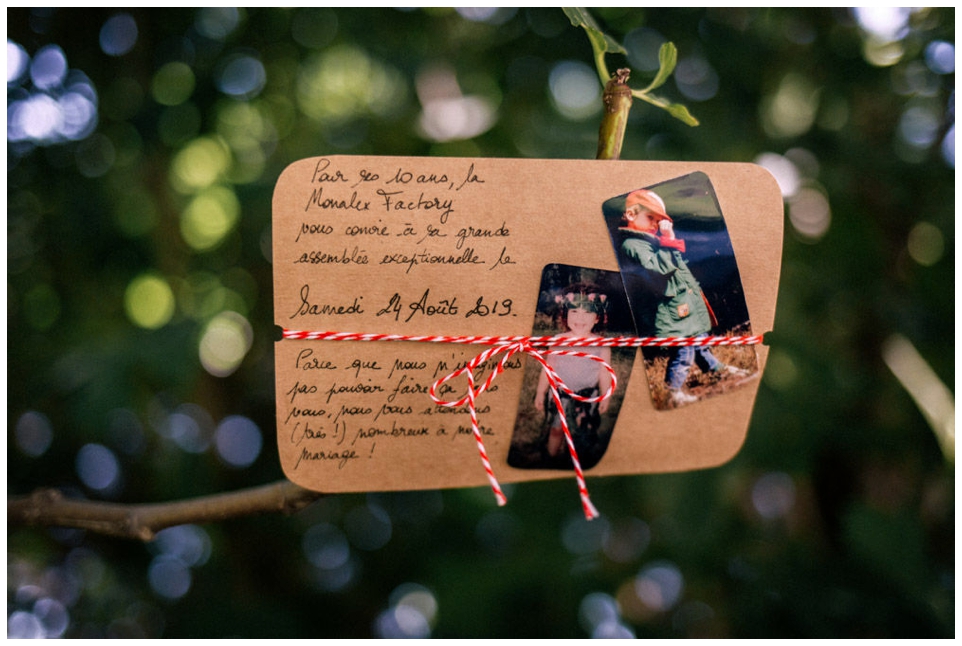 Pour ses 10 ans, la
Monalex Factory
vous convie à sa grande
assemblée exceptionnelle le
Samedi 24 Août 2019.
Parce que nous n'imaginons
pas pouvoir faire ça sans
vous, nous vous attendons
(très !) nombreux à notre
mariage !